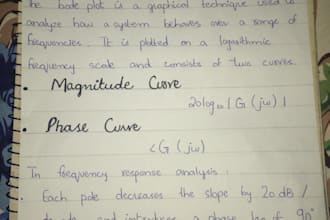 the bode plot is a graphical technique used to
analyze how a system behaves over a range of
frequencies. It is plotted on a logarithmic
frequency scale and consists of two curves.
• Magnitude Curve
20log₁₀ | G (jω) |
• Phase Curve
<G (jω)
In frequency response analysis :
• Each pole decreases the slope by 20 dB /
and introduces a phase lag of 90°